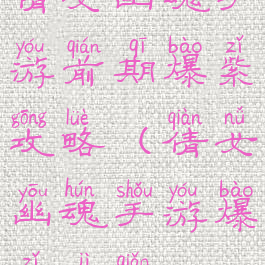 倩女幽魂手
yóu qián qī bào zǐ
游前期爆紫
gōng lüè qiàn nǚ
攻略(倩女
yōu hún shǒu yóu bào
幽魂手游爆
zǐ jì qiǎo